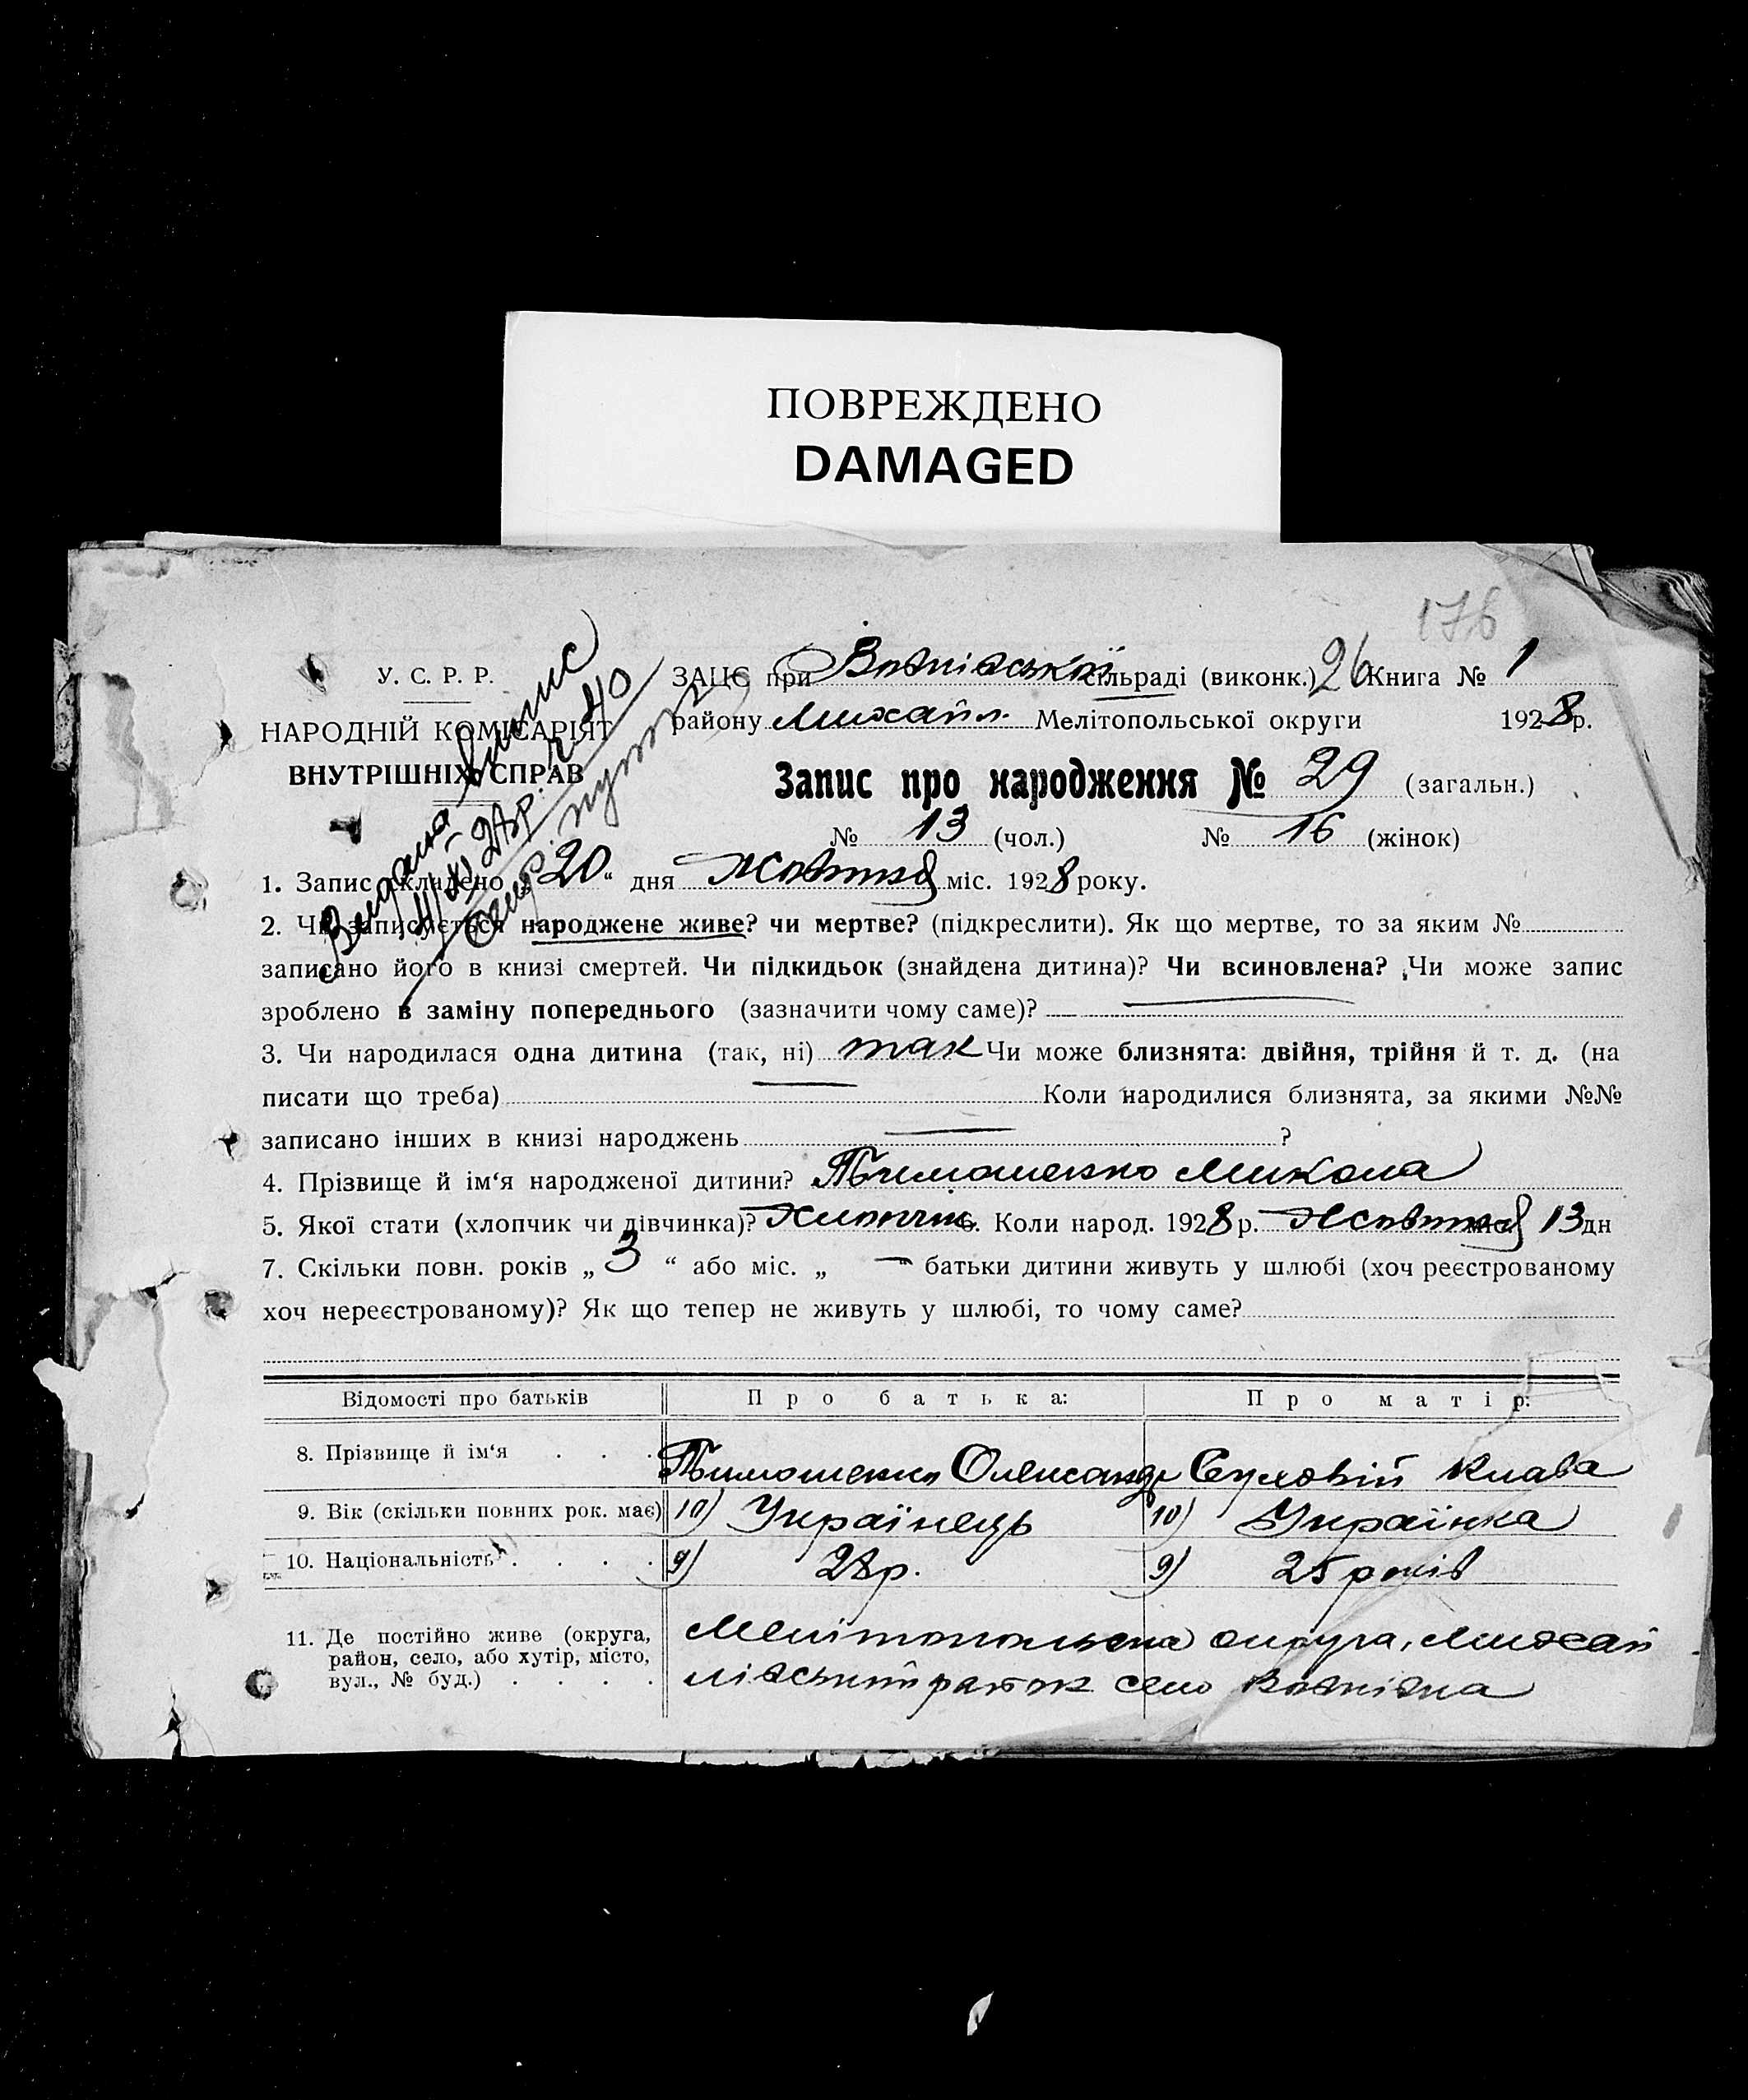 ПОВРЕЖДЕНО
DAMAGED
176
У. С. Р. Р.
НАРОДНІЙ КОМІСАРІЯТ
ВНУТРІШНІХ СПРАВ
Видана випис
ЗАЦС при сільраді (виконк.) 26 Книга № 1
району Михайл. Мелітопольської округи 1928 р.
Запис про народження № 29 (загальн.)
№ 13 (чол.) № 16 (жінок)
1. Запис складено „20“ дня Жовтня міс. 1928 року.
2. Чи записується народжене живе? чи мертве? (підкреслити). Як що мертве, то за яким №
записано його в книзі смертей. Чи підкидьок (знайдена дитина)? Чи всиновлена? Чи може запис
зроблено в заміну попереднього (зазначити чому саме)? —
3. Чи народилася одна дитина (так, ні) так Чи може близнята: двійня, трійня й т. д. (на
писати що треба) — Коли народилися близнята, за якими №№
записано інших в книзі народжень — ?
4. Прізвище й ім‘я народженої дитини? Тимошенко Микола
5. Якої стати (хлопчик чи дівчинка)? Хлопчик 6. Коли народ. 1928 р. Жовтня міс. 13 дн
7. Скільки повн. років „3“ або міс. „—“ батьки дитини живуть у шлюбі (хоч реєстрованому
хоч нереєстрованому)? Як що тепер не живуть у шлюбі, то чому саме?
Відомості про батьків Про батька: Про матір:
8. Прізвище й ім‘я . . . Тимошенко Олександр Суховій Клава
9. Вік (скільки повних рок. має) 10) Українець 10) Українка
10. Національність . . . . 9) 28р. 9) 25 років
11. Де постійно живе (округа, Мелітопольска округа, Михай
район, село, або хутір, місто, лівський район село
вул., № буд.) . . . .